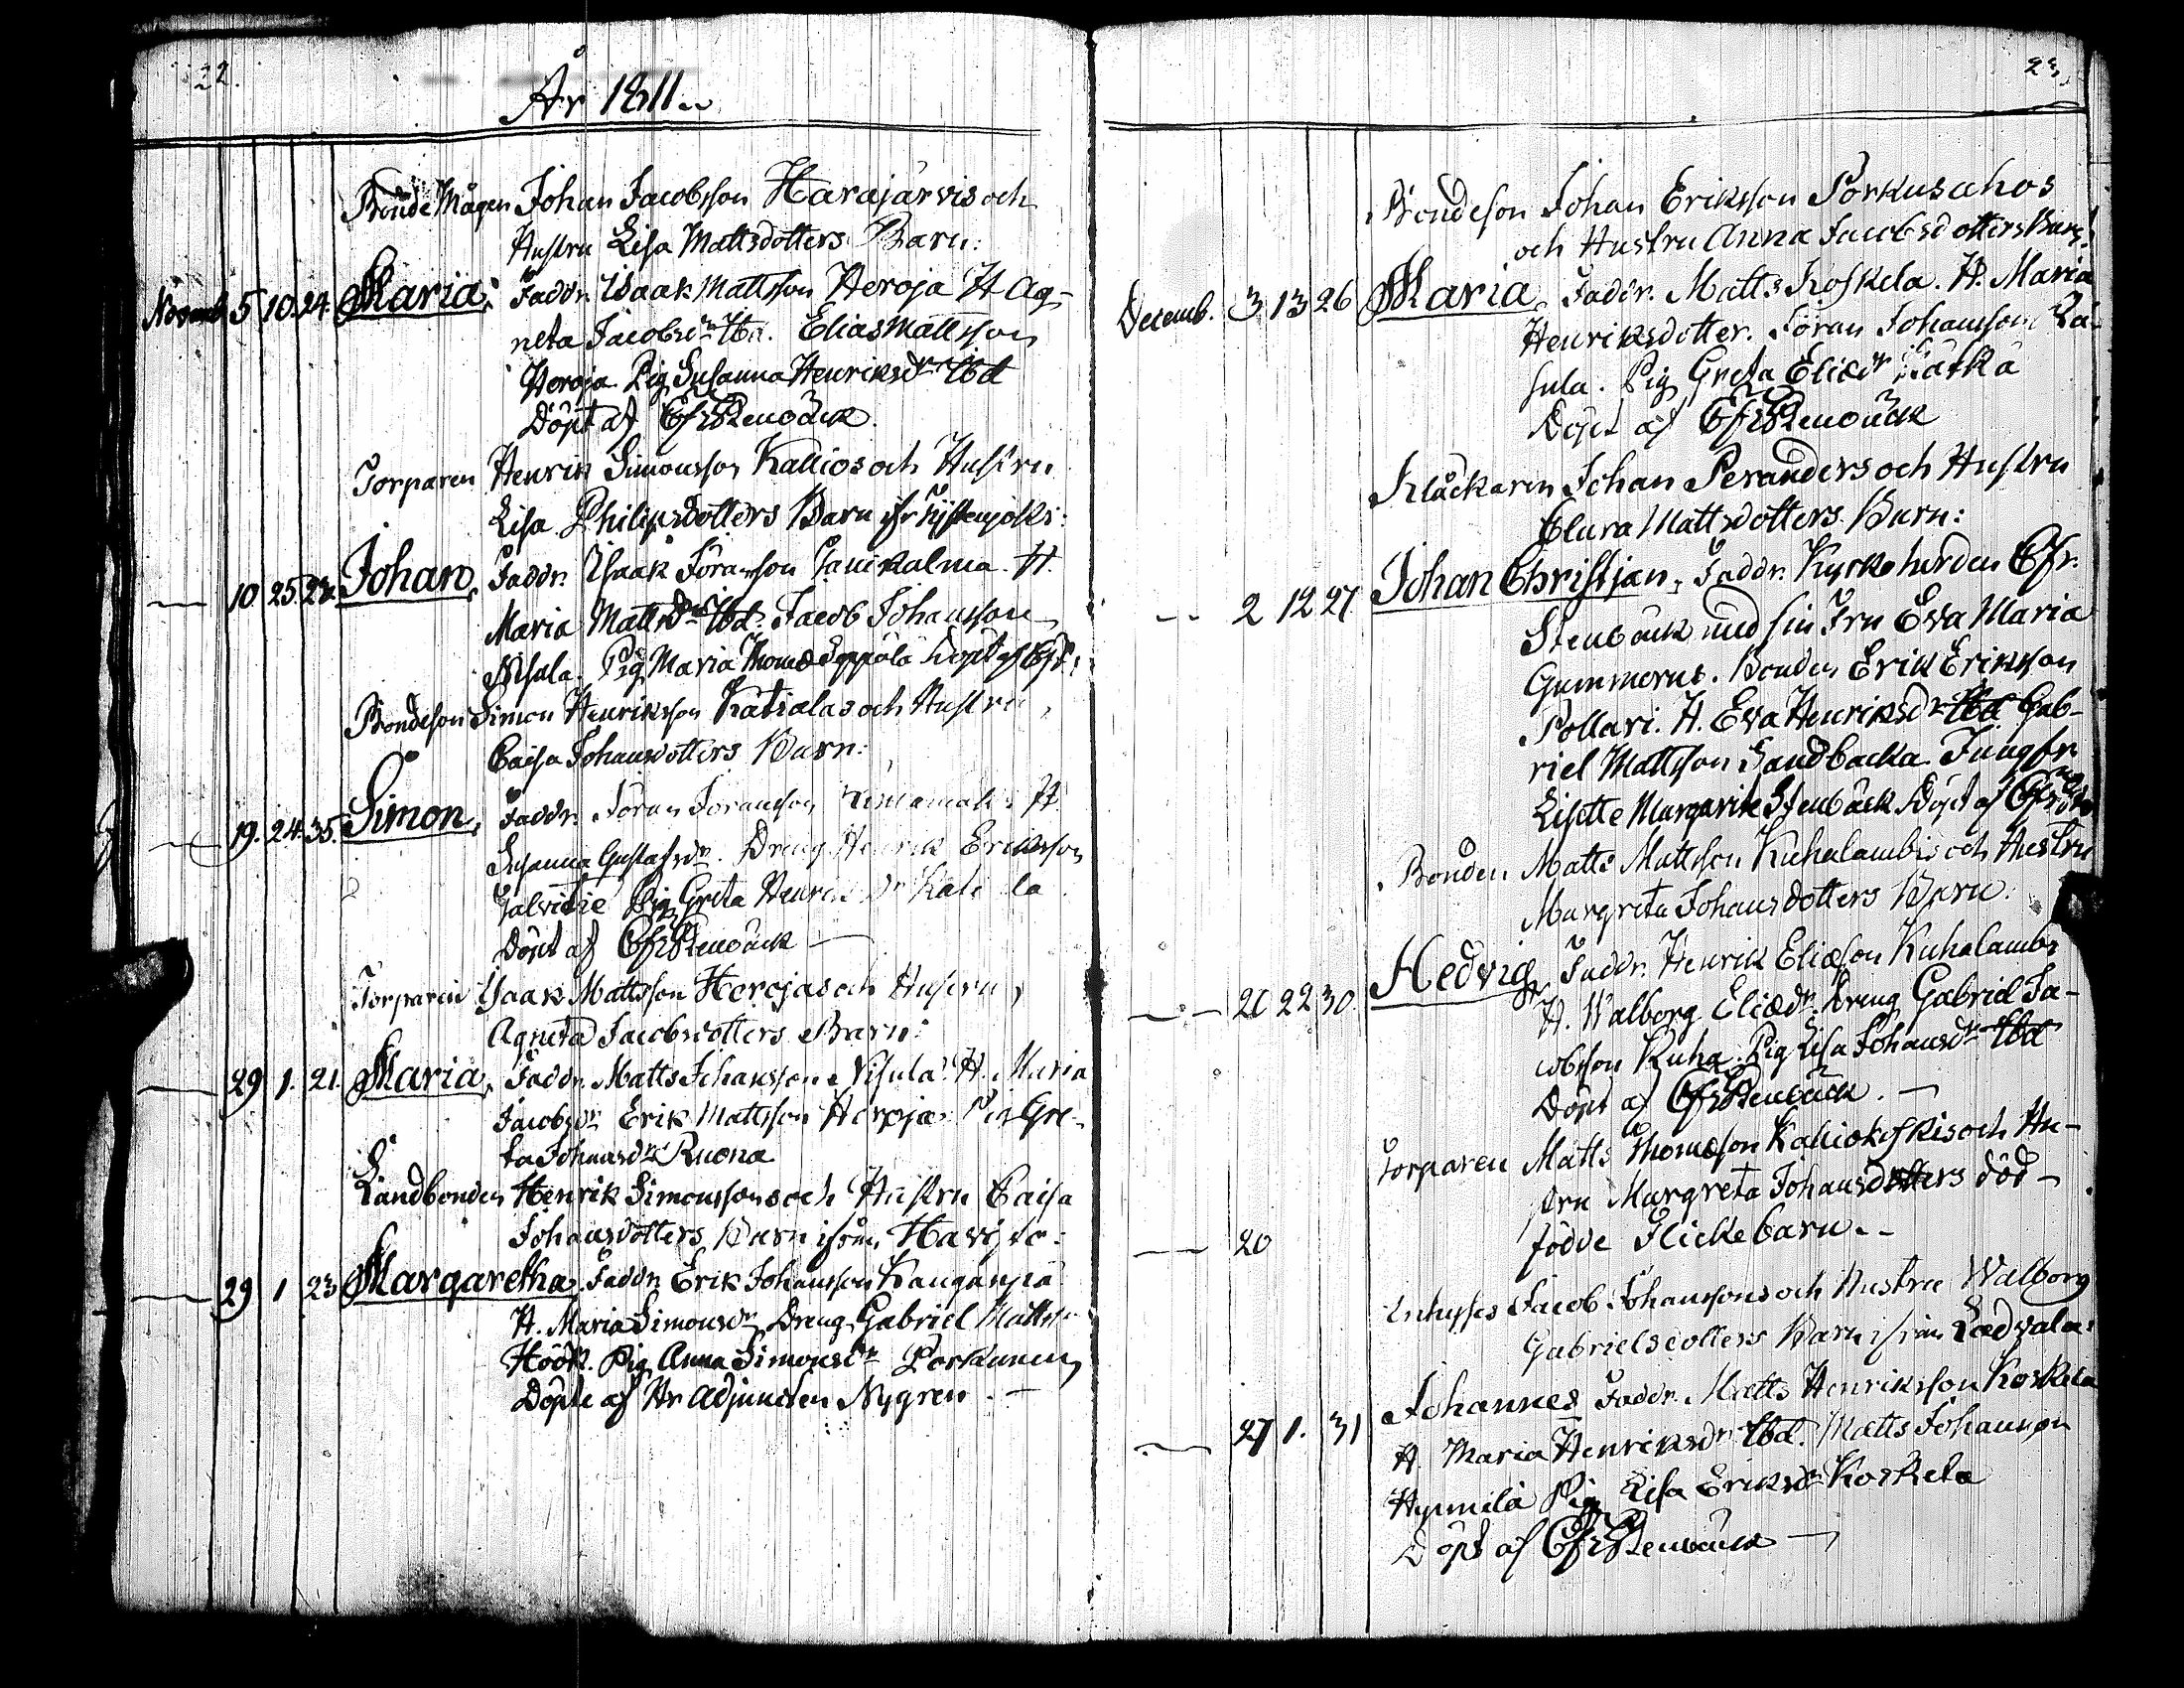 22.
År 1811..
Bonde Mågen Johan Jacobsson Harajärvis och
Hustru Lisa Mattsdotters Barn:
Novemb 5 10. 24. Maria, Faddr. Isaak Mattsson Heroja H Ag-
neta Jacobsdr Ibd. Elias Mattsson
Heroja. Pig Susanna Henriksdr Ibd
Döpt af Efr Stenbäck.
Torparen Henrik Simonsson Kallios och Hustru
Lisa Philipsdotters Barn
10 25. 23. Johan, Faddr. Isaak Göransson Hautkalma. H.
Maria Mattsdr Ibd. Jacob Johansson
Nisula. Pig Maria Thomæ Seppälä Döpt af
Bondeson Simon Henriksson Katialas och Hustru
Caisa Johansdotters Barn:
19. 24. 35. Simon, Faddr. Göran Göransson H.
Susanna Gustafsdr. Dreng Henrik Eriksson
Pig Greta Henriksdr
Döpt af Efr Stenbäck
Torparen Isaak Mattsson Herojas och Hustru
Agneta Jacobsdotters Barn:
29 1. 21. Maria, Faddr. Matts Johansson Nisula. H. Maria
Jacobsdr Erik Mattsson Heroja. Pig Gre-
ta Johansdr Ruona
Landbonden Henrik Simonssons och Hustru Caisa
Johansdotters Barn ifrån Havisto:
29 1 23 Margaretha, Faddr. Erik Johansson Kanganpä
H. Maria Simonsdr Dreng Gabriel Mattss
Höök. Pig Anna Simonsdr Porkunen
Döpte af Hr Adjuncten Nygren. —
23
Bondeson Johan Eriksson Porkusahos
och Hustru Anna Jacobsdotters Barn:
Decemb. 3 13 26 Maria, Faddr. Matts Koskela. H. Maria
Henriksdotter. Göran Johansson
sula. Pig Greta Eliædr Rätkä
Döpt af Efr Stenbäck
Klåckaren Johan Peranders och Hustru
Clara Mattsdotters Barn:
2 12 27 Johan Christian, Faddr. Kyrkoherden Efr.
Stenbäck med sin Fru Eva Maria
Gummerus. Bonden Erik Eriksson
Pollari. H. Eva Henriksdr Ibd Gab-
riel Mattsson Sandbacka. Jungfr
Lisette Margarite Stenbäck Döpt af Efr Stb
Bonden Matts Mattsson Kuhalambis och Hustru
Margreta Johansdotters Barn:
20 22 30 Hedvig, Faddr. Henrik Eliæson Kuhalambi
H. Walborg Eliædr. Dreng Gabriel Ja-
cobsson Kuha. Pig Lisa Johansdr Ibd
Döpt af Efr Stenbäck. —
Torparen Matts Thomæson Kalliokoskis och Hu-
stru Margreta Johansdotters död-
20 födde Flicke barn. -
Inhyses Jacob Johanssons och Hustru Walborg
Gabrielsdotters Barn ifrån Ladvala:
27 1. 31 Johannes Faddr. Matts Henriksson Koskela
H. Maria Henriksdr Ibd. Matts Johansson
Hypmilä Pig Lisa Eriksdr Koskela
Döpt af Efr Stenbäck —